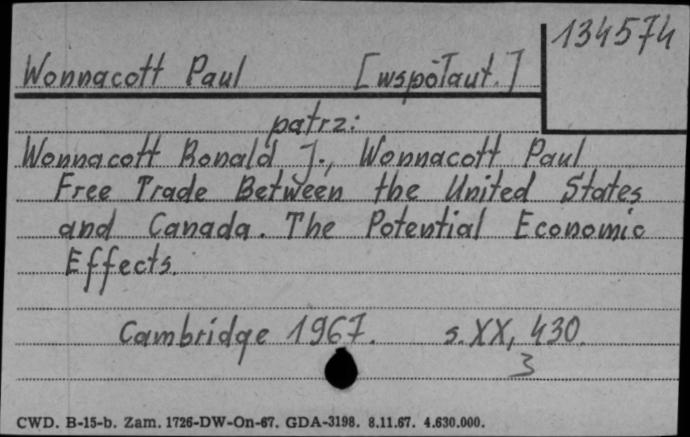 134574
Wonnacott Paul [współaut.]
patrz:
Wonnacott Ronald J., Wonnacott Paul
Free Trade Between the United States
and Canada. The Potential Economic
Effects.
Cambridge 1967. s. XX, 430.
3
CWD. B-15-b. Zam. 1726-DW-On-67. GDA-3198. 8.11.67. 4.630.000.